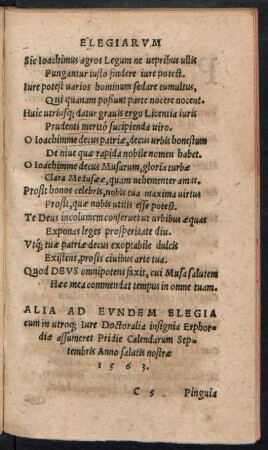 ELEGIARVM
Sic Ioachimus agros Legum ne vepribus ullis
Pungantur iusto findere iure potest.
Iure potest varios hominum sedare tumultus,
Qui quanam possunt parte nocere nocent.
Huic utriusq; datur gravis ergo Licentia iuris
Prudenti meritò suscipienda viro.
O Ioachimme decus patriæ, decus urbis honestum
De niue quæ rapida nobile nomen habet.
O Ioachimme decus Musarum, gloria turbæ
Clara Medusææ, quam uehementer amas.
Prosit honos celebris, nobis tua maxima virtus
Prosit, quæ nobis utilis esse potest.
Te Deus incolumem conseruet ut urbibus æquas
Exponas leges prosperitate diu.
Vtq; tuæ patriæ decus exoptabile dulcis
Existens, prosis ciuibus arte tua.
Quod DEVS omnipotens faxit, cui Musa salutem
Hæc mea commendat tempus in omne tuam.
ALIA AD EVNDEM ELEGIA
cum in utroq; Iure Doctoralia insignia Erphor-
diæ assumeret Pridie Calendarum Sep-
tembris Anno salutis nostræ
1563.
C 5 Pinguia